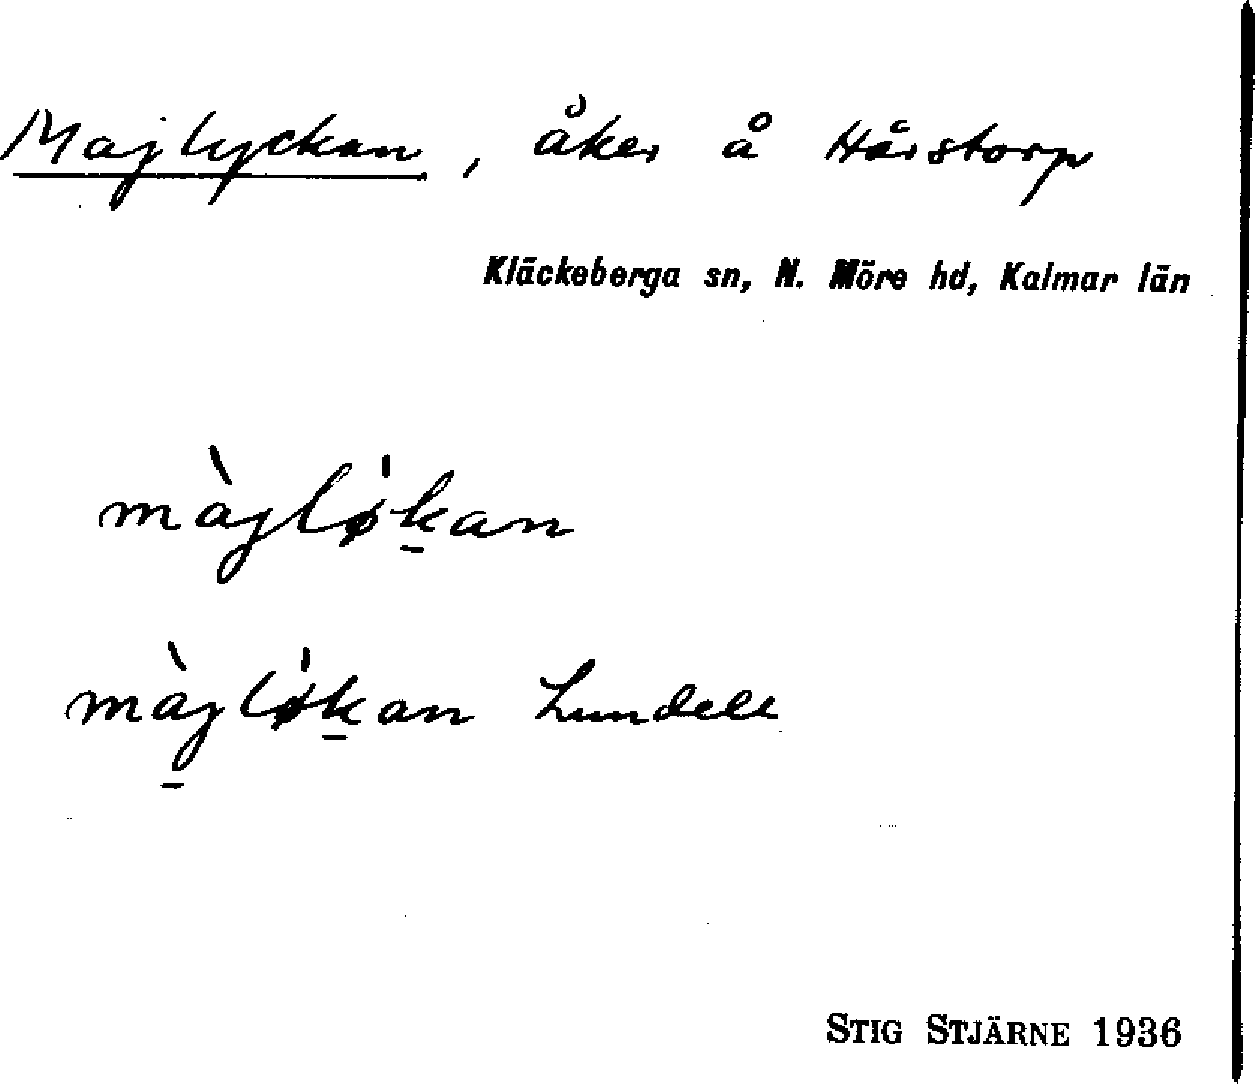 Majlyckan, åker å Hårstorp
Kläckeberga sn, N. Möre hd, Kalmar län
màjløkan
màjløkan Lundell
STIG STJÄRNE 1936